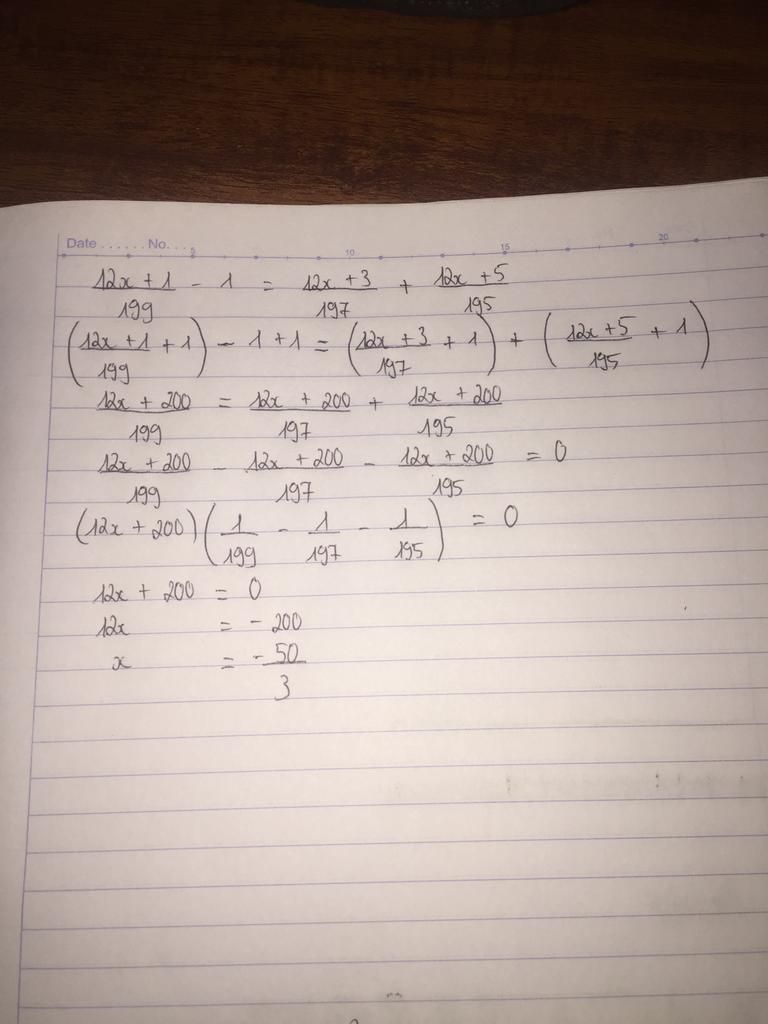 Date ...... No. ...
5 10 15 20
(12x + 1)/199 - 1 = (12x + 3)/197 + (12x + 5)/195
((12x + 1)/199 + 1) - 1 + 1 = ((12x + 3)/197 + 1) + ((12x + 5)/195 + 1)
(12x + 200)/199 = (12x + 200)/197 + (12x + 200)/195
(12x + 200)/199 - (12x + 200)/197 - (12x + 200)/195 = 0
(12x + 200)(1/199 - 1/197 - 1/195) = 0
12x + 200 = 0
12x = - 200
x = - 50/3